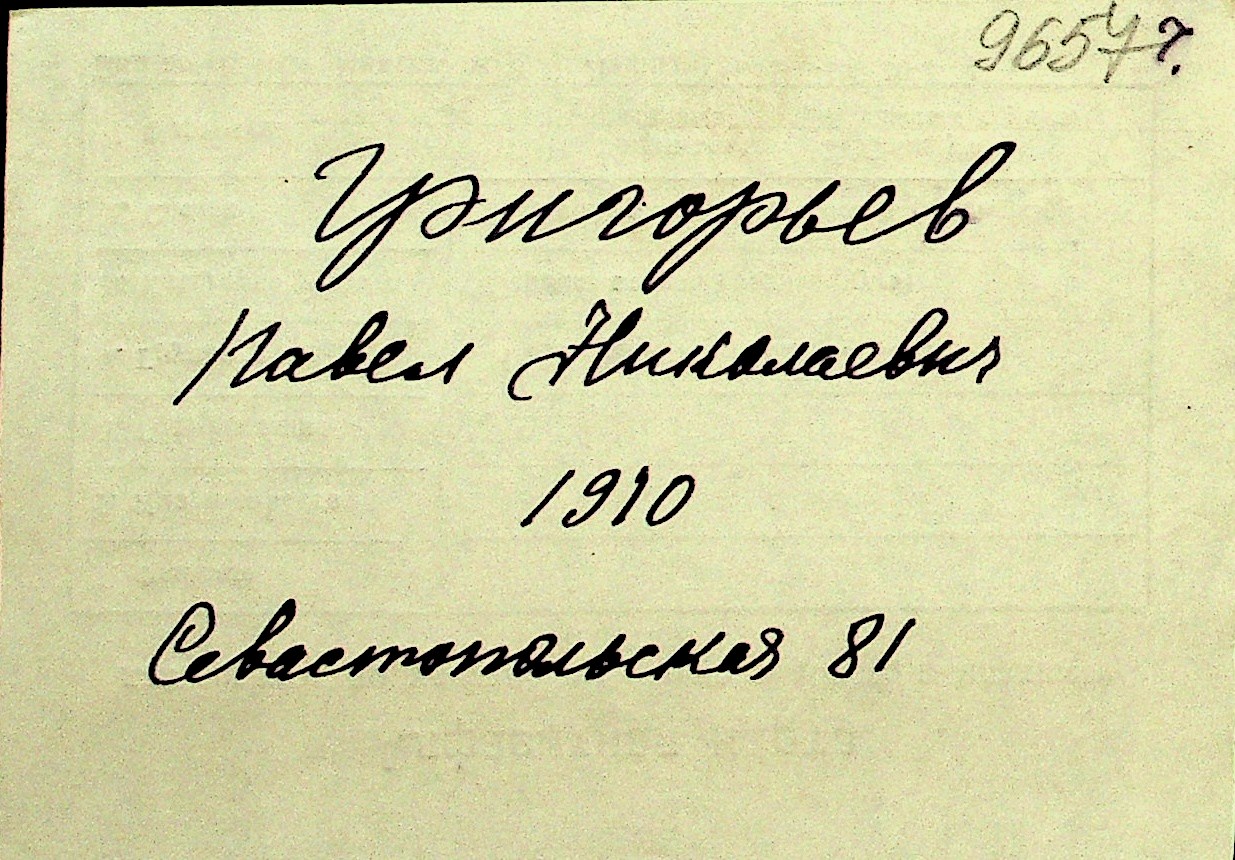 Григорьев
Павел Николаевич
1910
Севастопольская 81